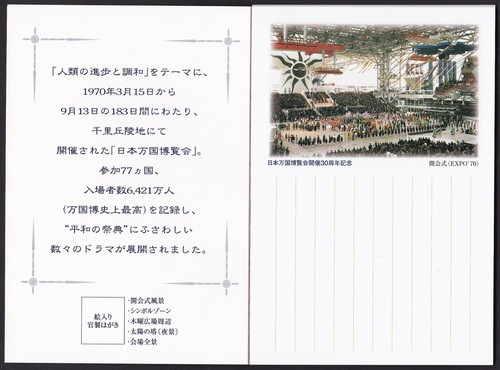 「人類の進歩と調和」をテーマに、
1970年3月15日から
9月13日の183日間にわたり、
千里丘陵地にて
開催された「日本万国博覧会」。
参加77ヵ国、
入場者数6,421万人
(万国博史上最高)を記録し、
“平和の祭典”にふさわしい
数々のドラマが展開されました。
絵入り
官製はがき
・開会式風景
・シンボルゾーン
・木曜広場周辺
・太陽の塔〔夜景〕
・会場全景
日本万国博覧会開催30周年記念
開会式(EXPO'70)